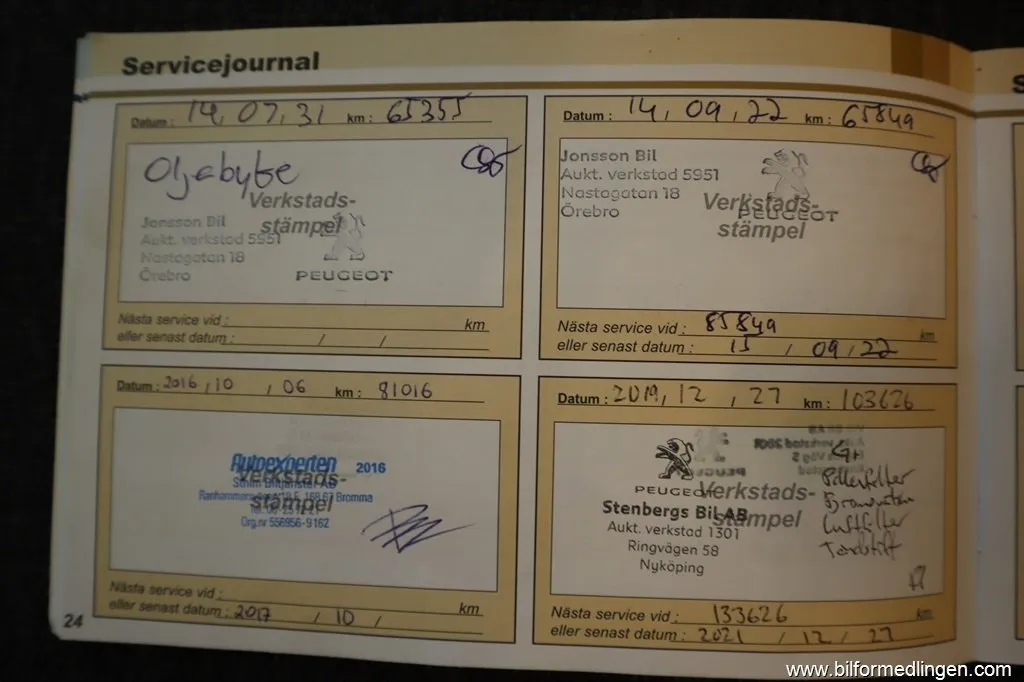 Servicejournal
Datum : 14, 07, 31 km : 65355
Oljebyte
Verkstads-
stämpel
Jonsson Bil
Aukt. verkstad 5951
Nastagatan 18
Örebro
PEUGEOT
Nästa service vid : km
eller senast datum : / /
Datum : 14, 09, 22 km : 65849
Jonsson Bil
Aukt. verkstad 5951
Nastagatan 18
Örebro
Verkstads-
stämpel
PEUGEOT
Nästa service vid : 85849 km
eller senast datum : 15 / 09 / 22
Datum : 2016, 10, 06 km : 81016
Autoexperten 2016
Verkstads-
stämpel
Bromma
Org.nr 556956-9162
Nästa service vid : km
eller senast datum : 2017 / 10 /
Datum : 2019, 12, 27 km : 103626
PEUGEOT
Verkstads-
stämpel
Stenbergs Bil AB
Aukt. verkstad 1301
Ringvägen 58
Nyköping
Pollenfilter
Bromsvätska
Luftfilter
Tändstift
Nästa service vid : 133626 km
eller senast datum : 2021 / 12 / 27
24
www.bilformedlingen.com